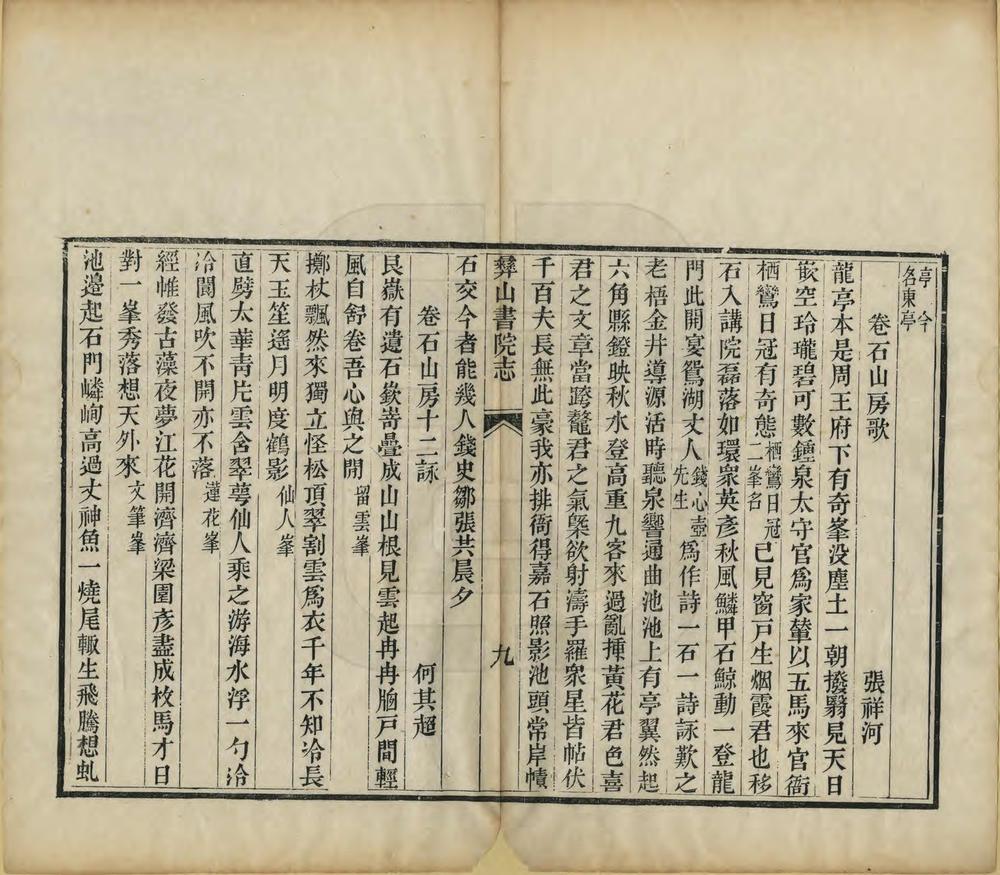 亭今
名東亭
卷石山房歌　張祥河
龍亭本是周王府下有奇峯没塵土一朝撥翳見天日
嵌空玲瓏碧可數鍾泉太守官爲家輦以五馬來官衙
栖鸞日冠有奇態栖鸞日冠二峯名已見窗戸生烟霞君也移
石入講院磊落如環衆英彥秋風鱗甲石鯨動一登龍
門此開宴鴛湖丈人錢心壺先生爲作詩一石一詩詠歎之
老梧金井導源活時聽泉響通曲池池上有亭翼然起
六角縣鐙映秋水登高重九客來過亂揷黃花君色喜
君之文章當跨鼇君之氣槩欲射濤手羅衆星皆帖伏
千百夫長無此豪我亦排衙得嘉石照影池頭常岸幘
彝山書院志　九
石交今者能幾人錢史鄒張共晨夕
卷石山房十二詠　何其超
艮嶽有遺石嶔嵜疊成山山根見雲起冉冉牕戸間輕
風自舒卷吾心與之閒留雲峯
擲杖飄然來獨立怪松頂翠割雲爲衣千年不知冷長
天玉笙遙月明度鶴影仙人峯
直劈太華靑片雲含翠萼仙人乘之游海水浮一勺洽
洽閬風吹不開亦不落蓮花峯
經帷發古藻夜夢江花開濟濟梁園彥盡成枚馬才日
對一峯秀落想天外來文筆峯
池邊起石門嶙峋高過丈神魚一燒尾輙生飛騰想虬